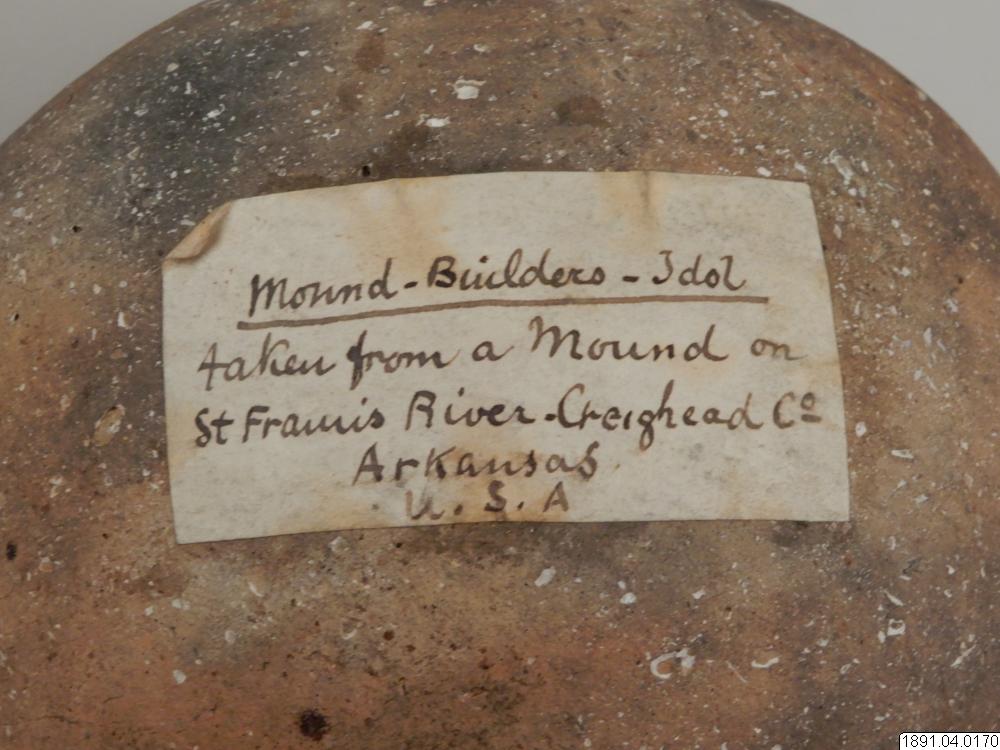 Mound-Builders-Idol
taken from a Mound on
St Francis River-Creighead Co
Arkansas
U.S.A
1891.04.0170